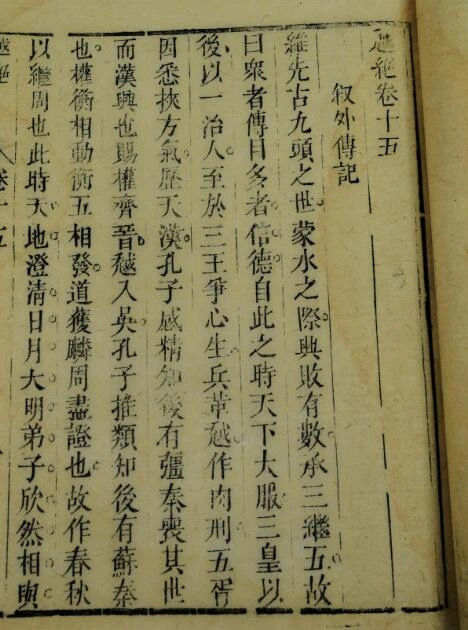 越絕卷十五
叙外傳記
維先古九頭之世蒙水之際興敗有數承三繼五故
曰衆者傳目多者信德自此之時天下大服三皇以
後以一治人至於三王爭心生兵革越作肉刑五胥
因悉挾方氣歷天漢孔子感精知後有彊秦喪其世
而漢興也賜權齊晉越入吳孔子推類知後有蘇秦
也權衡相動衡五相發道獲麟周盡證也故作春秋
以繼周也此時天地澄清日月大明弟子欣然相與